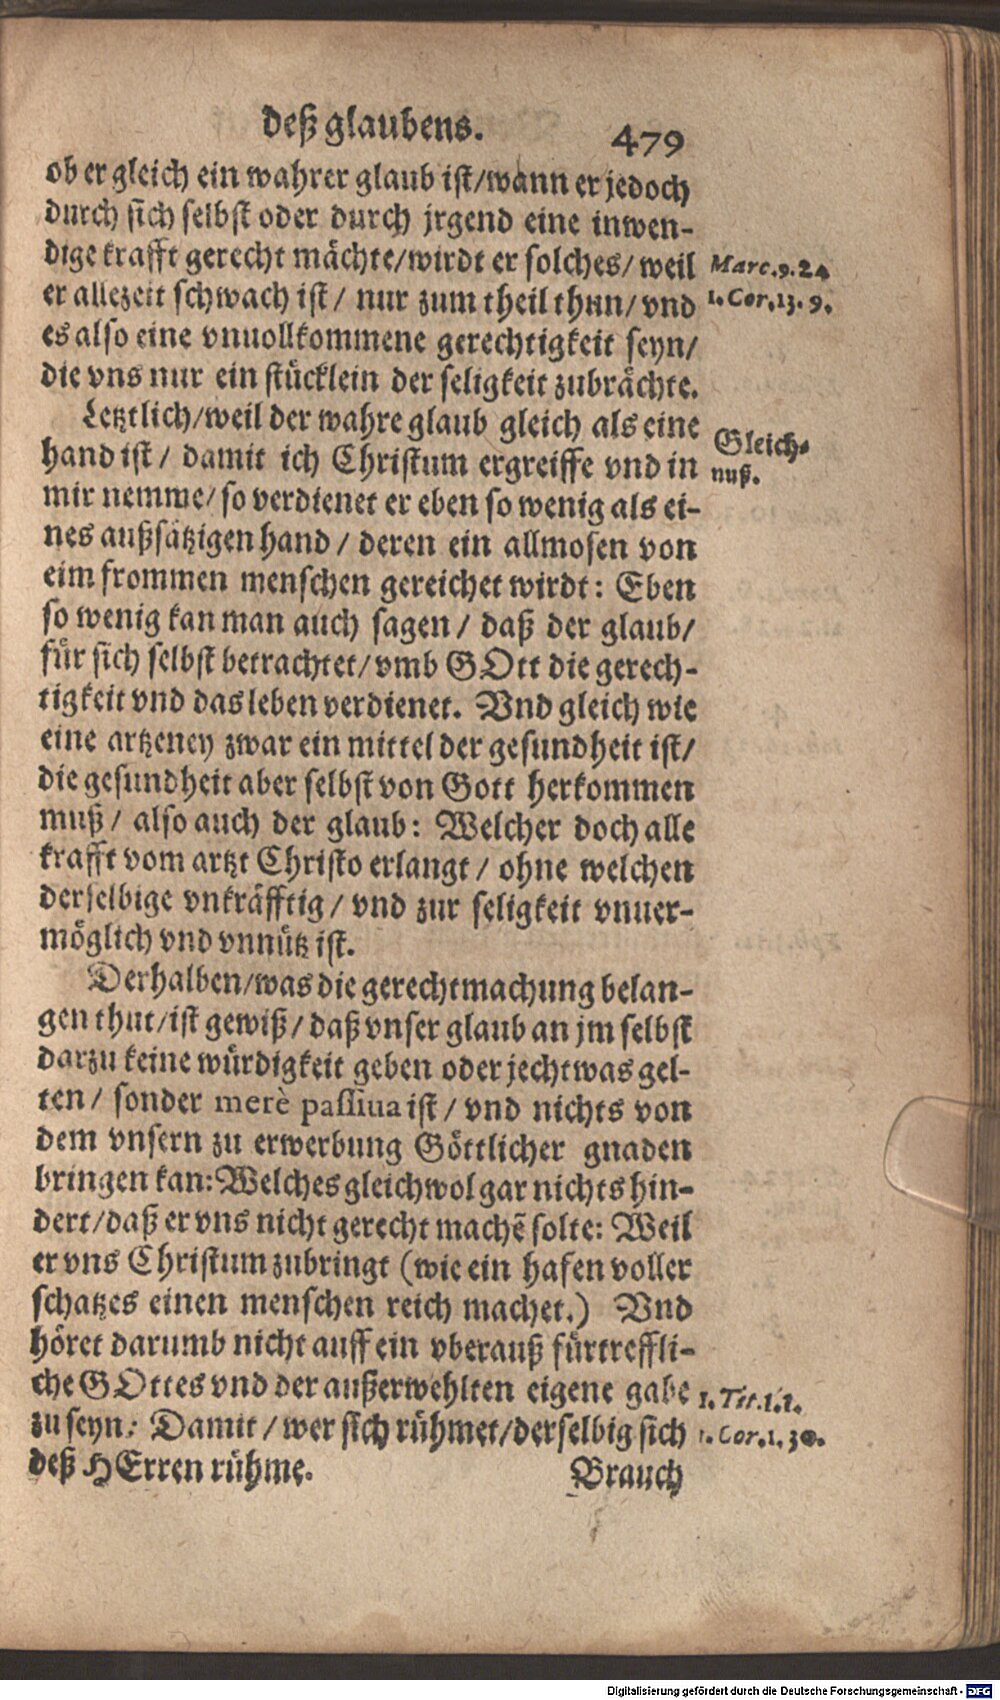 deß glaubens. 479
ob er gleich ein wahrer glaub ist/wann er jedoch
durch sich selbst oder durch jrgend eine inwen-
dige krafft gerecht mächte/wirdt er solches/ weil
Marc.9.24
er allezeit schwach ist/ nur zum theil thun/ vnd
1.Cor.13.9.
es also eine vnuollkommene gerechtigkeit seyn/
die vns nur ein stücklein der seligkeit zubrächte.
Letztlich/weil der wahre glaub gleich als eine
Gleich-
hand ist/ damit ich Christum ergreiffe vnd in
nuß.
mir nemme/ so verdienet er eben so wenig als ei-
nes außsätzigen hand/ deren ein allmosen von
eim frommen menschen gereichet wirdt: Eben
so wenig kan man auch sagen/ daß der glaub/
für sich selbst betrachtet/ vmb GOtt die gerech-
tigkeit vnd das leben verdienet. Vnd gleich wie
eine artzeney zwar ein mittel der gesundheit ist/
die gesundheit aber selbst von Gott herkommen
muß/ also auch der glaub: Welcher doch alle
krafft vom artzt Christo erlangt/ ohne welchen
derselbige vnkräfftig/ vnd zur seligkeit vnuer-
möglich vnd vnnütz ist.
Derhalben/was die gerechtmachung belan-
gen thut/ist gewiß/ daß vnser glaub an jm selbst
darzu keine würdigkeit geben oder jechtwas gel-
ten/ sonder merè passiua ist/ vnd nichts von
dem vnsern zu erwerbung Göttlicher gnaden
bringen kan: Welches gleichwol gar nichts hin-
dert/daß er vns nicht gerecht machẽ solte: Weil
er vns Christum zubringt (wie ein hafen voller
schatzes einen menschen reich machet.) Vnd
höret darumb nicht auff ein vberauß fürtreffli-
che GOttes vnd der außerwehlten eigene gabe
1.Tit.1.1.
zu seyn: Damit/ wer sich rühmet/derselbig sich
1.Cor.1.30.
deß HErren rühme. Brauch
Digitalisierung gefördert durch die Deutsche Forschungsgemeinschaft - DFG